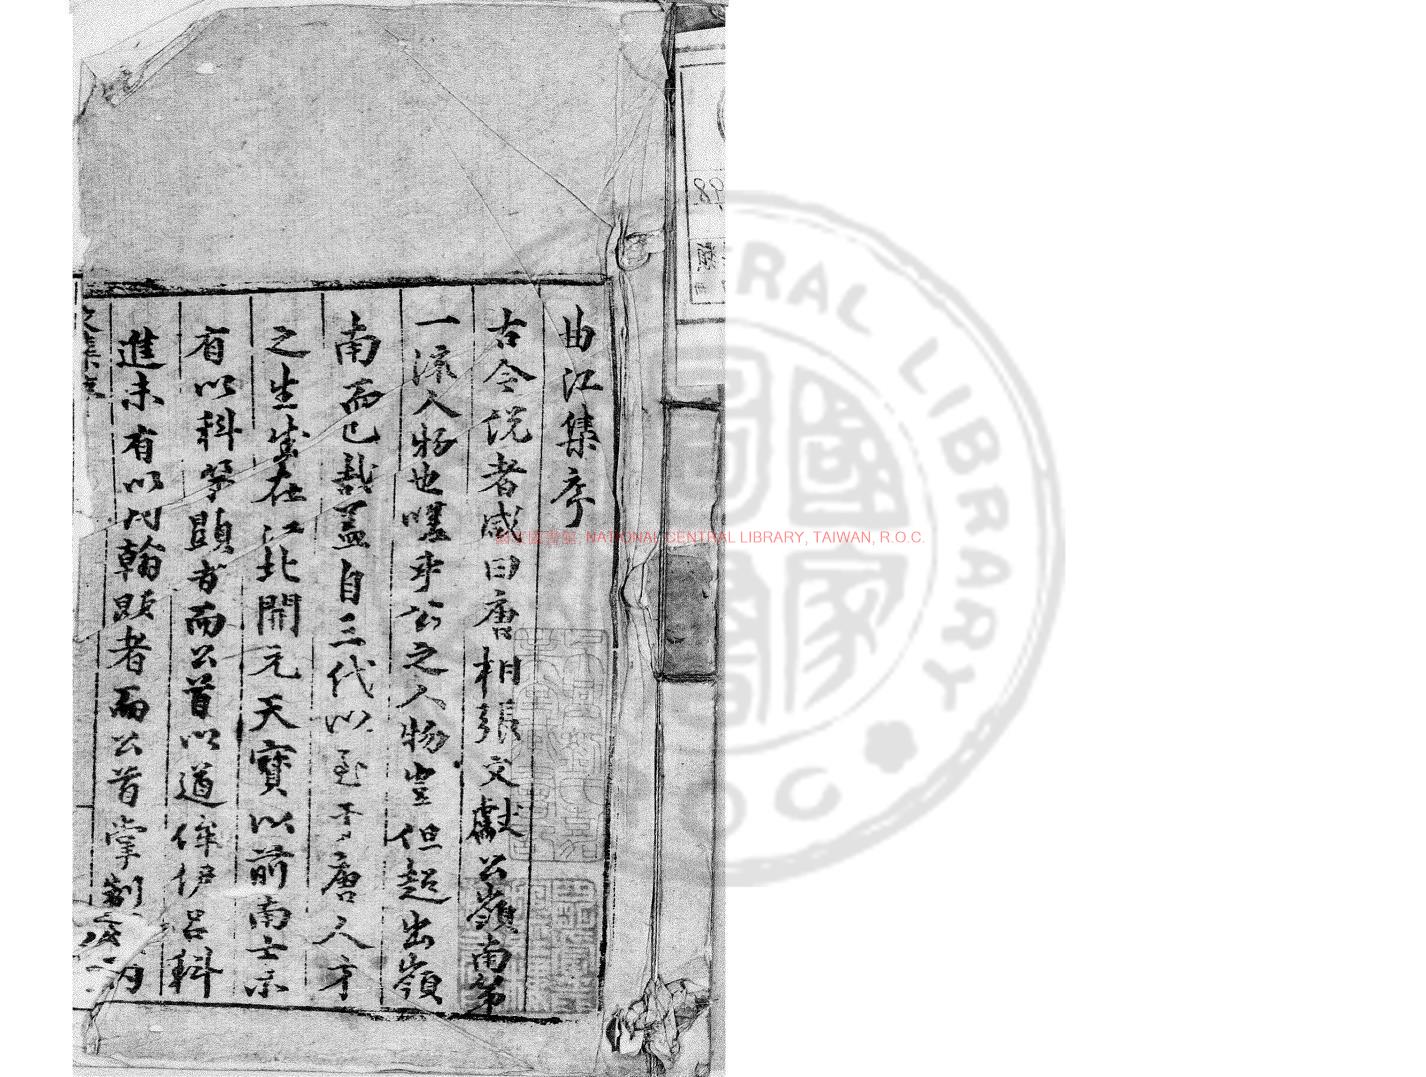 曲江集序
古今說者咸曰唐相張文獻公嶺南第
一流人物也嘆乎公之人物豈但超出嶺
南而已哉蓋自三代以至于唐人才
之生盛在江北開元天寶以前南士未
有以科第顯者而公首以道侔伊呂科
進未有以詞翰顯者而公首掌制內
國家圖書館 NATIONAL CENTRAL LIBRARY, TAIWAN, R.O.C.